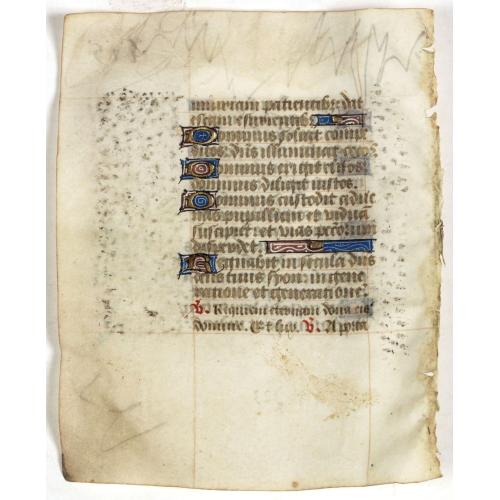 iniuriam patientib: dat
escam esurientib
Dominus soluit compe
ditos: dns illuminat cecos
Dominus erigit elisos
dominus diligit iustos.
Dominus custodit adue
nas pupillum et vidua
suscipiet et vias peccatorum
disperdet
Regnabit in secula dns
deus tuus syon: in gene
ratione et generatione
V. Requiem eternam dona eis
domine. Et lux. V. A porta